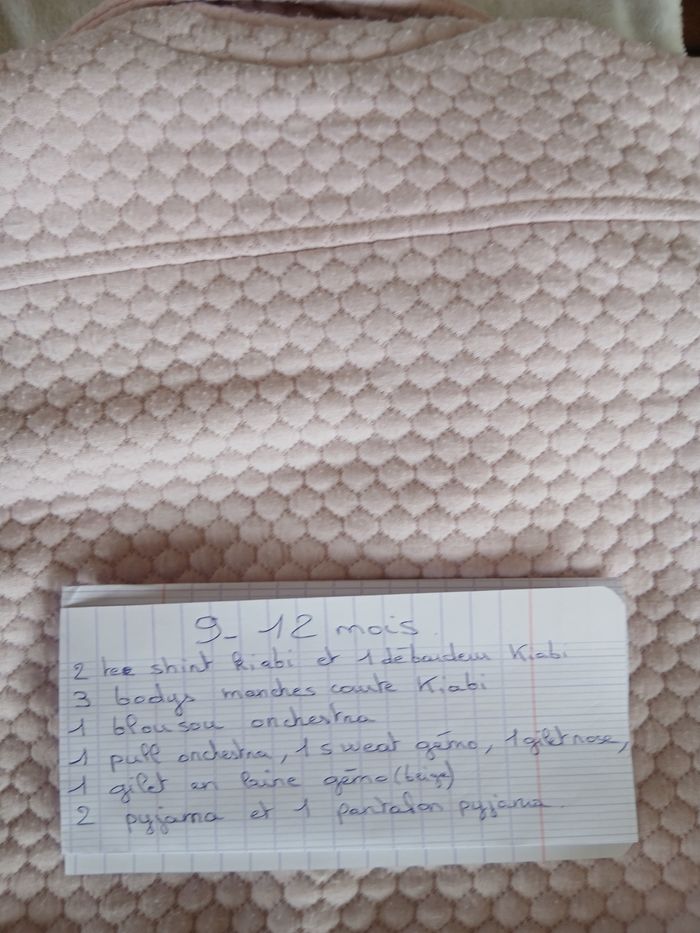 9-12 mois
2 tee shirt kiabi et 1 débardeur Kiabi
3 bodys manches courte Kiabi
1 blouson orchestra
1 pull orchestra, 1 sweat gémo, 1 gilet rose,
1 gilet en laine gémo (beige)
2 pyjama et 1 pantalon pyjama.